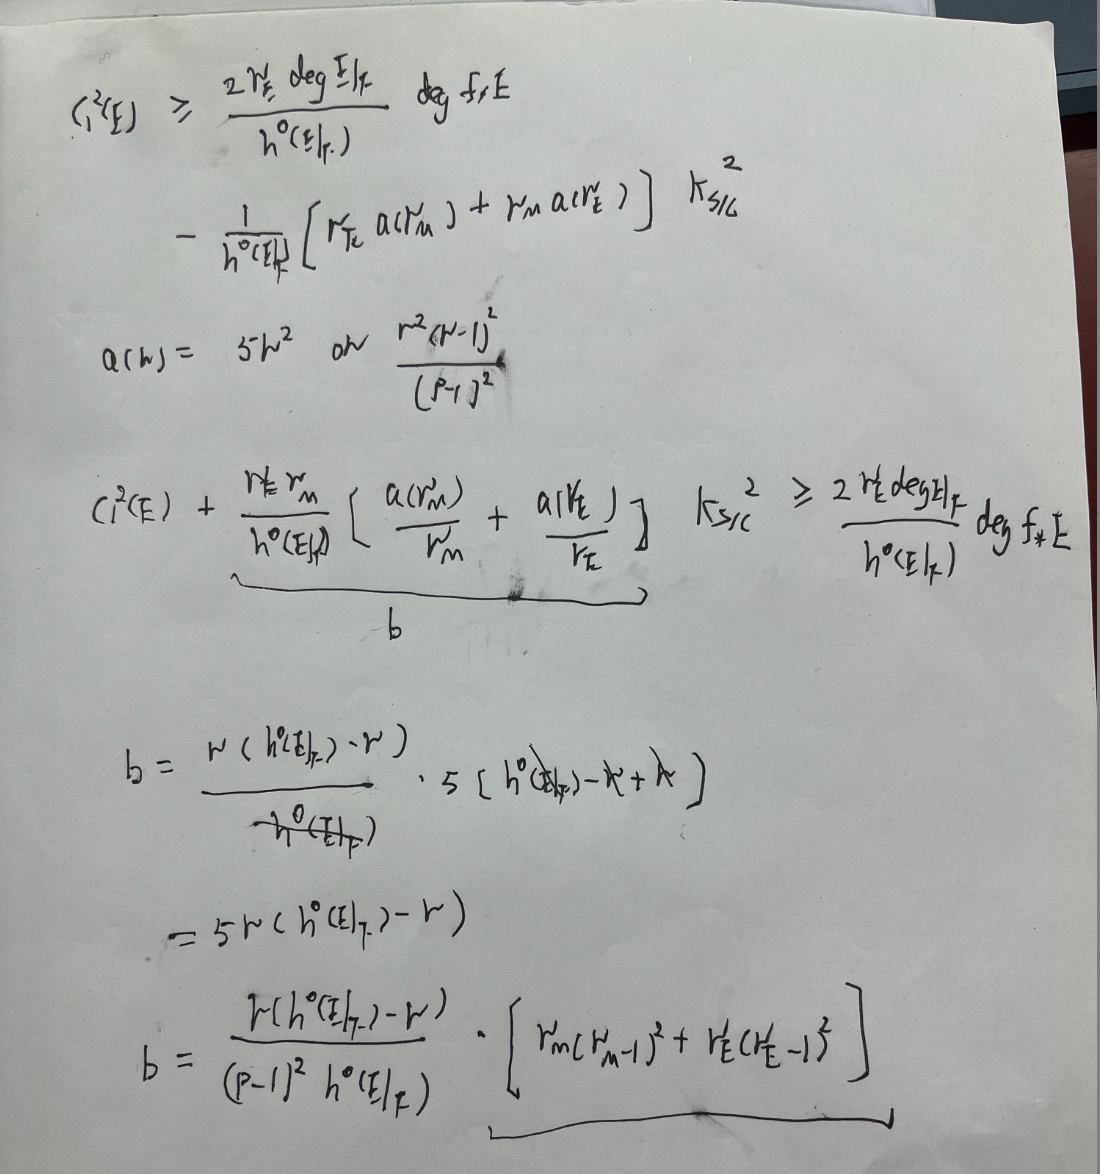 c₁²(E) ≥ \frac{2 r_E deg E|_F}{h⁰(E|_F)} deg f_*E
- \frac{1}{h⁰(E|_F)} [ r_E a(r_M) + r_M a(r_E) ] K_{S/C}²
a(r) = 5r² or \frac{r²(r-1)²}{(p-1)²}
c₁²(E) + \frac{r_E r_M}{h⁰(E|_F)} [ \frac{a(r_M)}{r_M} + \frac{a(r_E)}{r_E} ] K_{S/C}² ≥ \frac{2 r_E deg E|_F}{h⁰(E|_F)} deg f_*E
b
b = \frac{r ( h⁰(E|_F) - r )}{h⁰(E|_F)} · 5 [ h⁰(E|_F) - r + r ]
= 5r ( h⁰(E|_F) - r )
b = \frac{r(h⁰(E|_F) - r)}{(p-1)² h⁰(E|_F)} · [ r_M(r_M-1)² + r_E(r_E-1)² ]